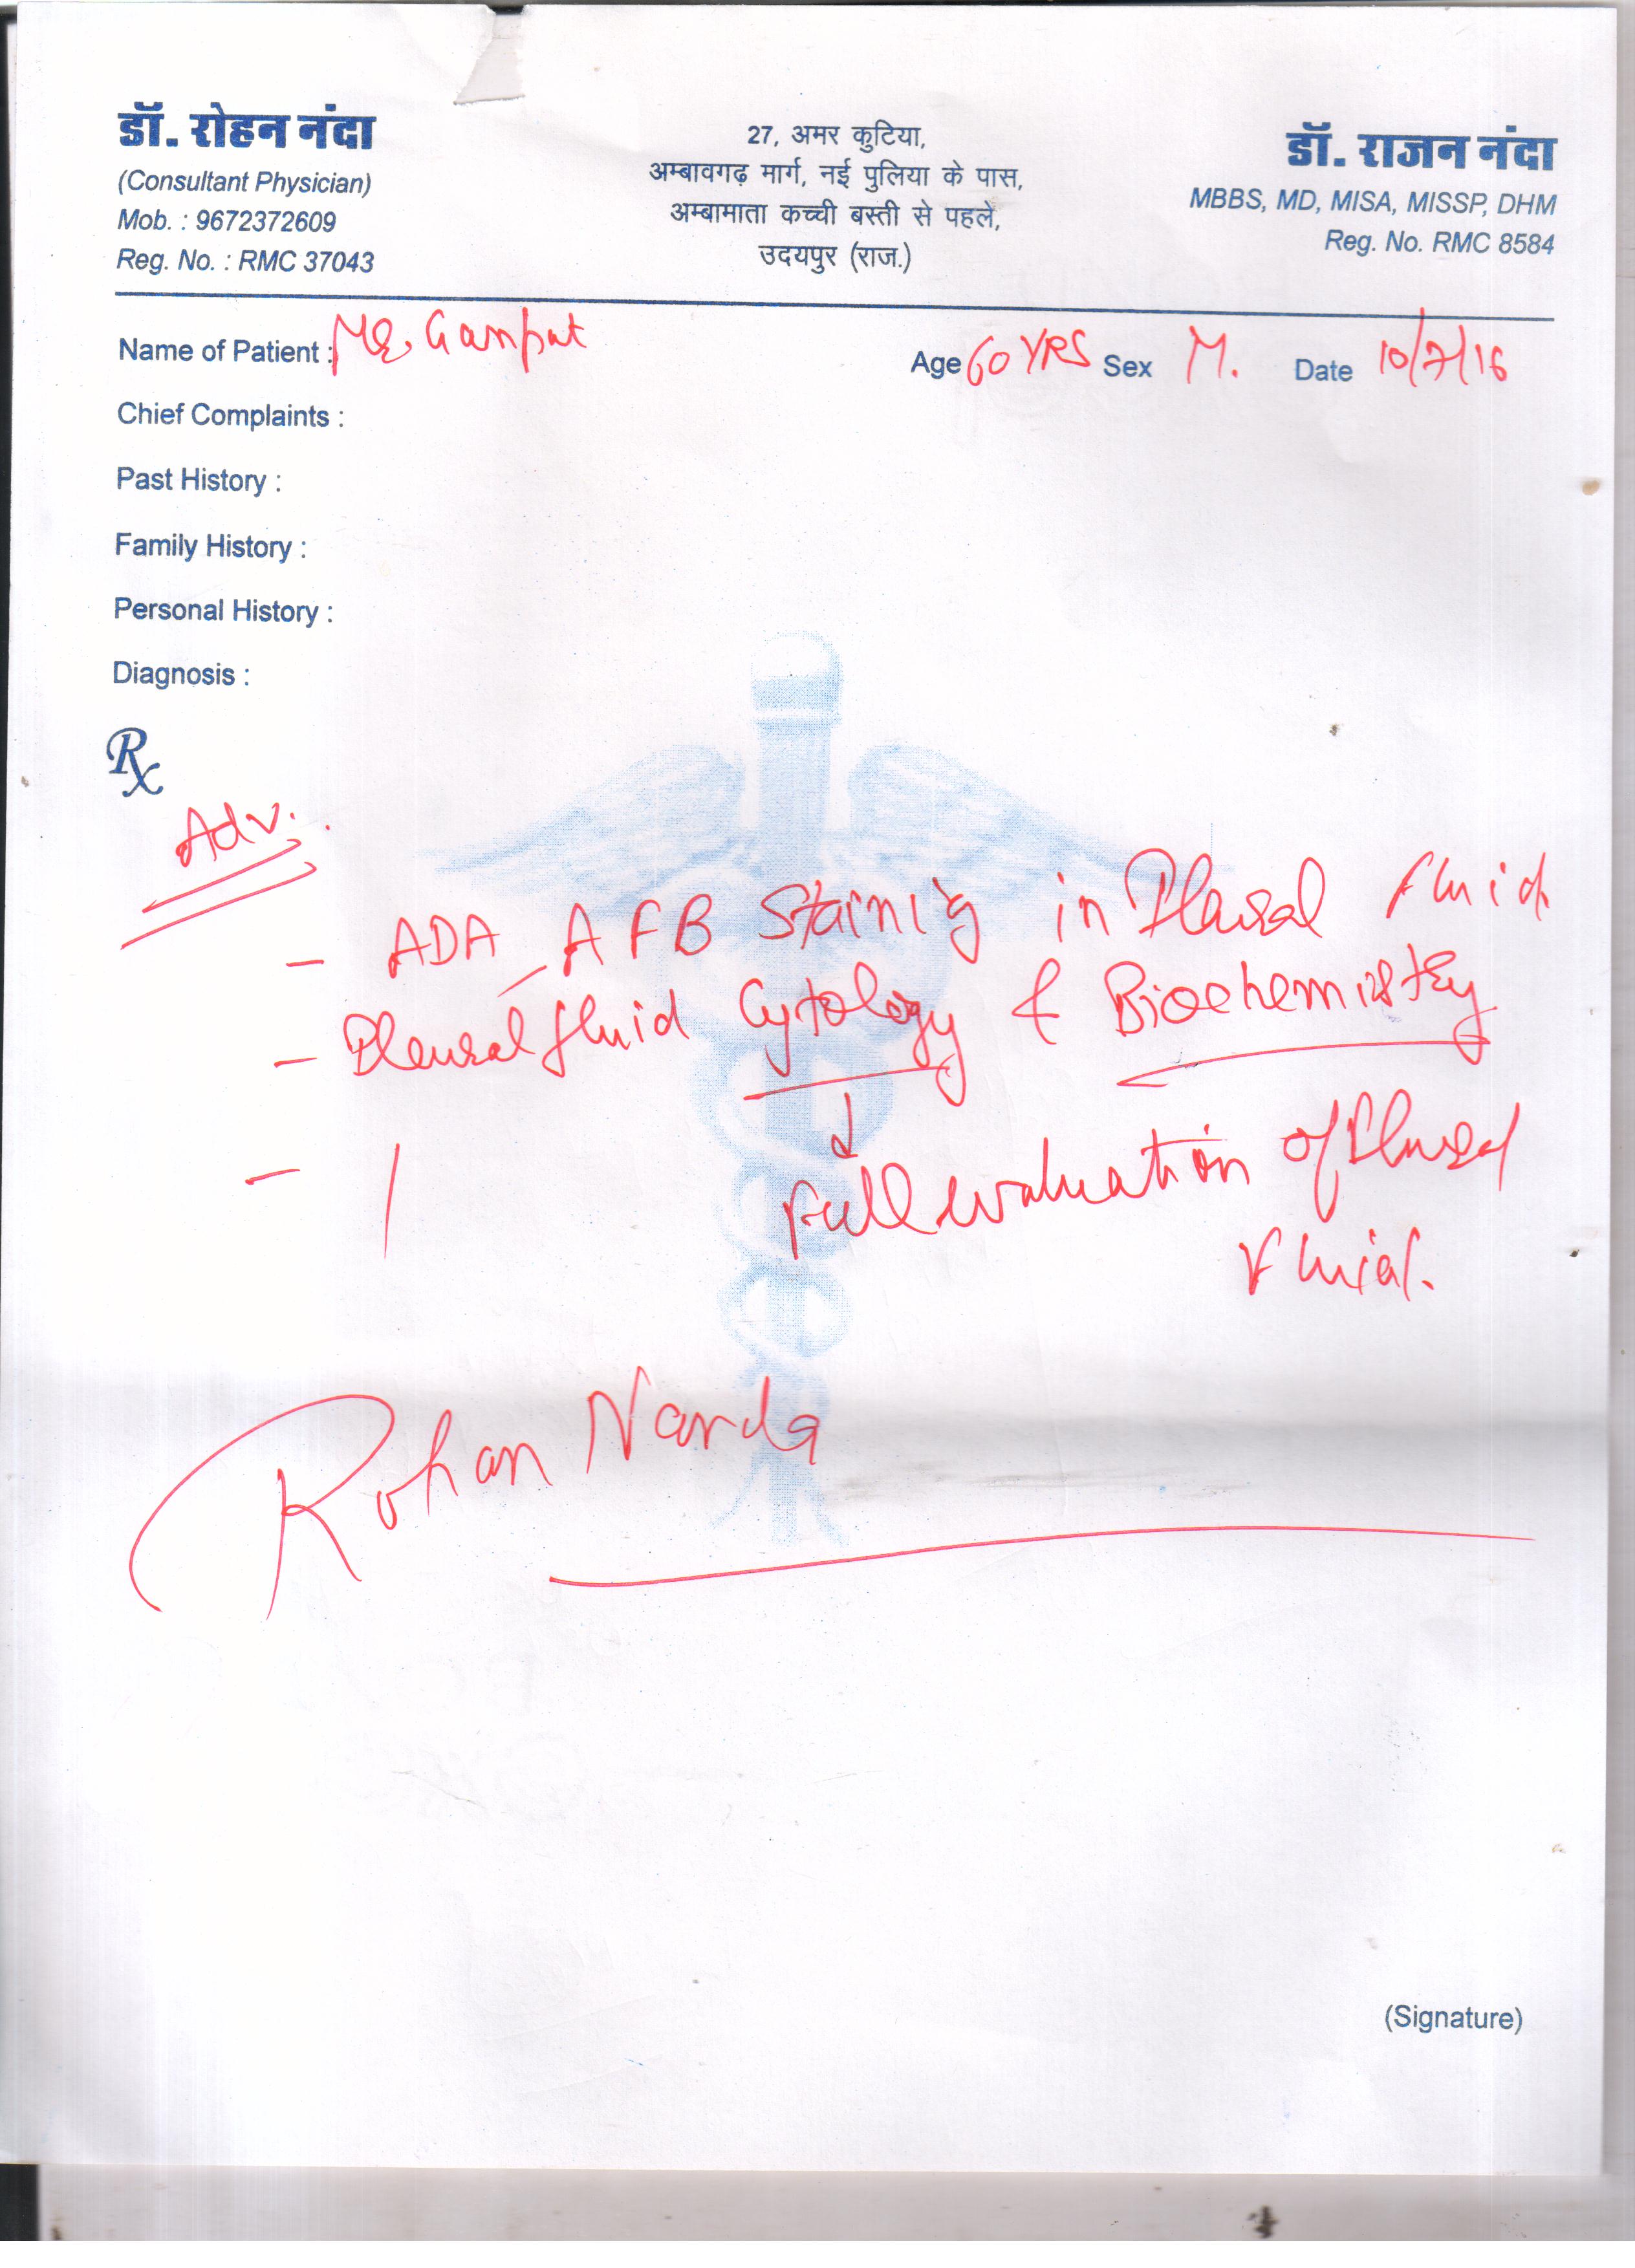 डॉ. रोहन नंदा
(Consultant Physician)
Mob. : 9672372609
Reg. No. : RMC 37043
27, अमर कुटिया,
अम्बावगढ़ मार्ग, नई पुलिया के पास,
अम्बामाता कच्ची बस्ती से पहले,
उदयपुर (राज.)
डॉ. राजन नंदा
MBBS, MD, MISA, MISSP, DHM
Reg. No. RMC 8584
Name of Patient : Mr. Ganpat Age 60 YRS Sex M. Date 10/7/16
Chief Complaints :
Past History :
Family History :
Personal History :
Diagnosis :
Rx
Adv.
- ADA - AFB Staining in Pleural Fluid.
- Pleural fluid Cytology & Biochemistry
-
↓
Full evaluation of Pleural
Fluid.
Rohan Nanda
(Signature)